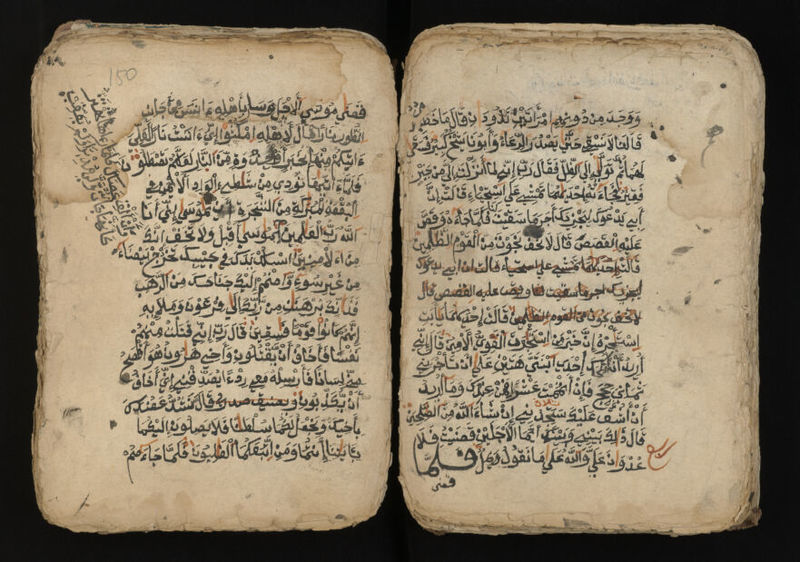 ووجد من دونهم امرأتين تذودان قال ما خطبكما
قالتا لا نسقي حتى يصدر الرعاء وأبونا شيخ كبير فسقى
لهما ثم تولى إلى الظل فقال رب إني لما أنزلت إلي من خير
فقير فجاءته إحدىهما تمشي على استحياء قالت إن
أبي يدعوك ليجزيك أجر ما سقيت لنا فلما جاءه وقص
عليه القصص قال لا تخف نجوت من القوم الظلمين
قالت إحدىهما تمشي على استحياء قالت إن أبي يدعوك
ليجزيك أجر ما سقيت لنا وقص عليه القصص قال
لا تخف نجوت من القوم الظلمين قالت إحدىهما يابت
استجره إن خير من استجرت القوي الأمين قال إني
أريد أن أنكحك إحدى ابنتي هتين على أن تأجرني
ثمني حجج فإن أتممت عشرا فمن عندك وما أريد
أن أشق عليك ستجدني إن شاء الله من الصلحين
قال ذلك بيني وبينك أيما الأجلين قضيت فلا
عدوان علي والله على ما نقول وكيل فلما
قضى
150
فقضى موسى الأجل وسار بأهله ءانس من جانب
الطور نارا قال لأهله امكثوا إني ءانست نارا لعلي
ءاتيكم منها بخبر أو جذوة من النار لعلكم تصطلون
فلما أتىها نودي من شاطئ الواد الأيمن في
البقعة المبركة من الشجرة أن يموسى إني أنا
الله رب العلمين يموسى أقبل ولا تخف إنك
من الأمنين اسلك يدك في جيبك تخرج بيضاء
من غير سوء واضمم إليك جناحك من الرهب
فذانك برهنان من ربك إلى فرعون وملإيه
إنهم كانوا قوما فسقين قال رب إني قتلت منهم
نفسا فأخاف أن يقتلون وأخي هرون هو أفصح
مني لسانا فأرسله معي ردءا يصدقني إني أخاف
أن يكذبون ويضيق صدري قال سنشد عضدك
بأخيك ونجعل لكما سلطنا فلا يصلون إليكما
بءايتنا أنتما ومن اتبعكما الغلبون فلما جاءهم